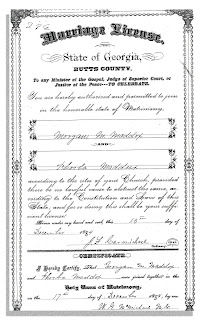 Marriage License.
State of Georgia,
BUTTS COUNTY.
To any Minister of the Gospel, Judge of Superior Court, or
Justice of the Peace—TO CELEBRATE.
You are hereby authorized and permitted to join
in the honorable state of Matrimony,
Morgan M. Maddox
AND
Rhoda Maddux
according to the rites of your Church, provided
there be no lawful cause to obstruct the same, ac-
cording to the Constitution and Laws of this
State, and for so doing this shall be your suffi-
cient license.
Given under my hand and seal, this 15th day of
December 189
J. F. Carmichael
Ordinary.
CERTIFICATE
I Hereby Certify, That Morgan M. Maddox
and Rhoda Maddox were joined together in the
Holy Bans of Matrimony,
on the 17th day of December 189 , by me,